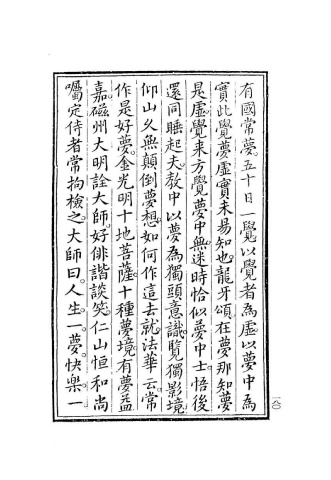 有國常夢。五十日一覺。以覺者為虛。以夢中為
實。此覺夢虛實未易知也。龍牙頌。在夢那知夢
是虛。覺来方覺夢中無。迷時恰似夢中士。悟後
還同睡起夫。教中以夢為獨頭意識。覧獨影境
仰山久無顛倒夢想。如何作這去就。法華云。常
作是好夢。金光明十地菩薩。十種夢境有夢益
嘉。磁州大明詮大師。好俳諧談笑。仁山恒和尚
囑定侍者常拘檢之。大師曰。人生一夢。快樂一
一八〇